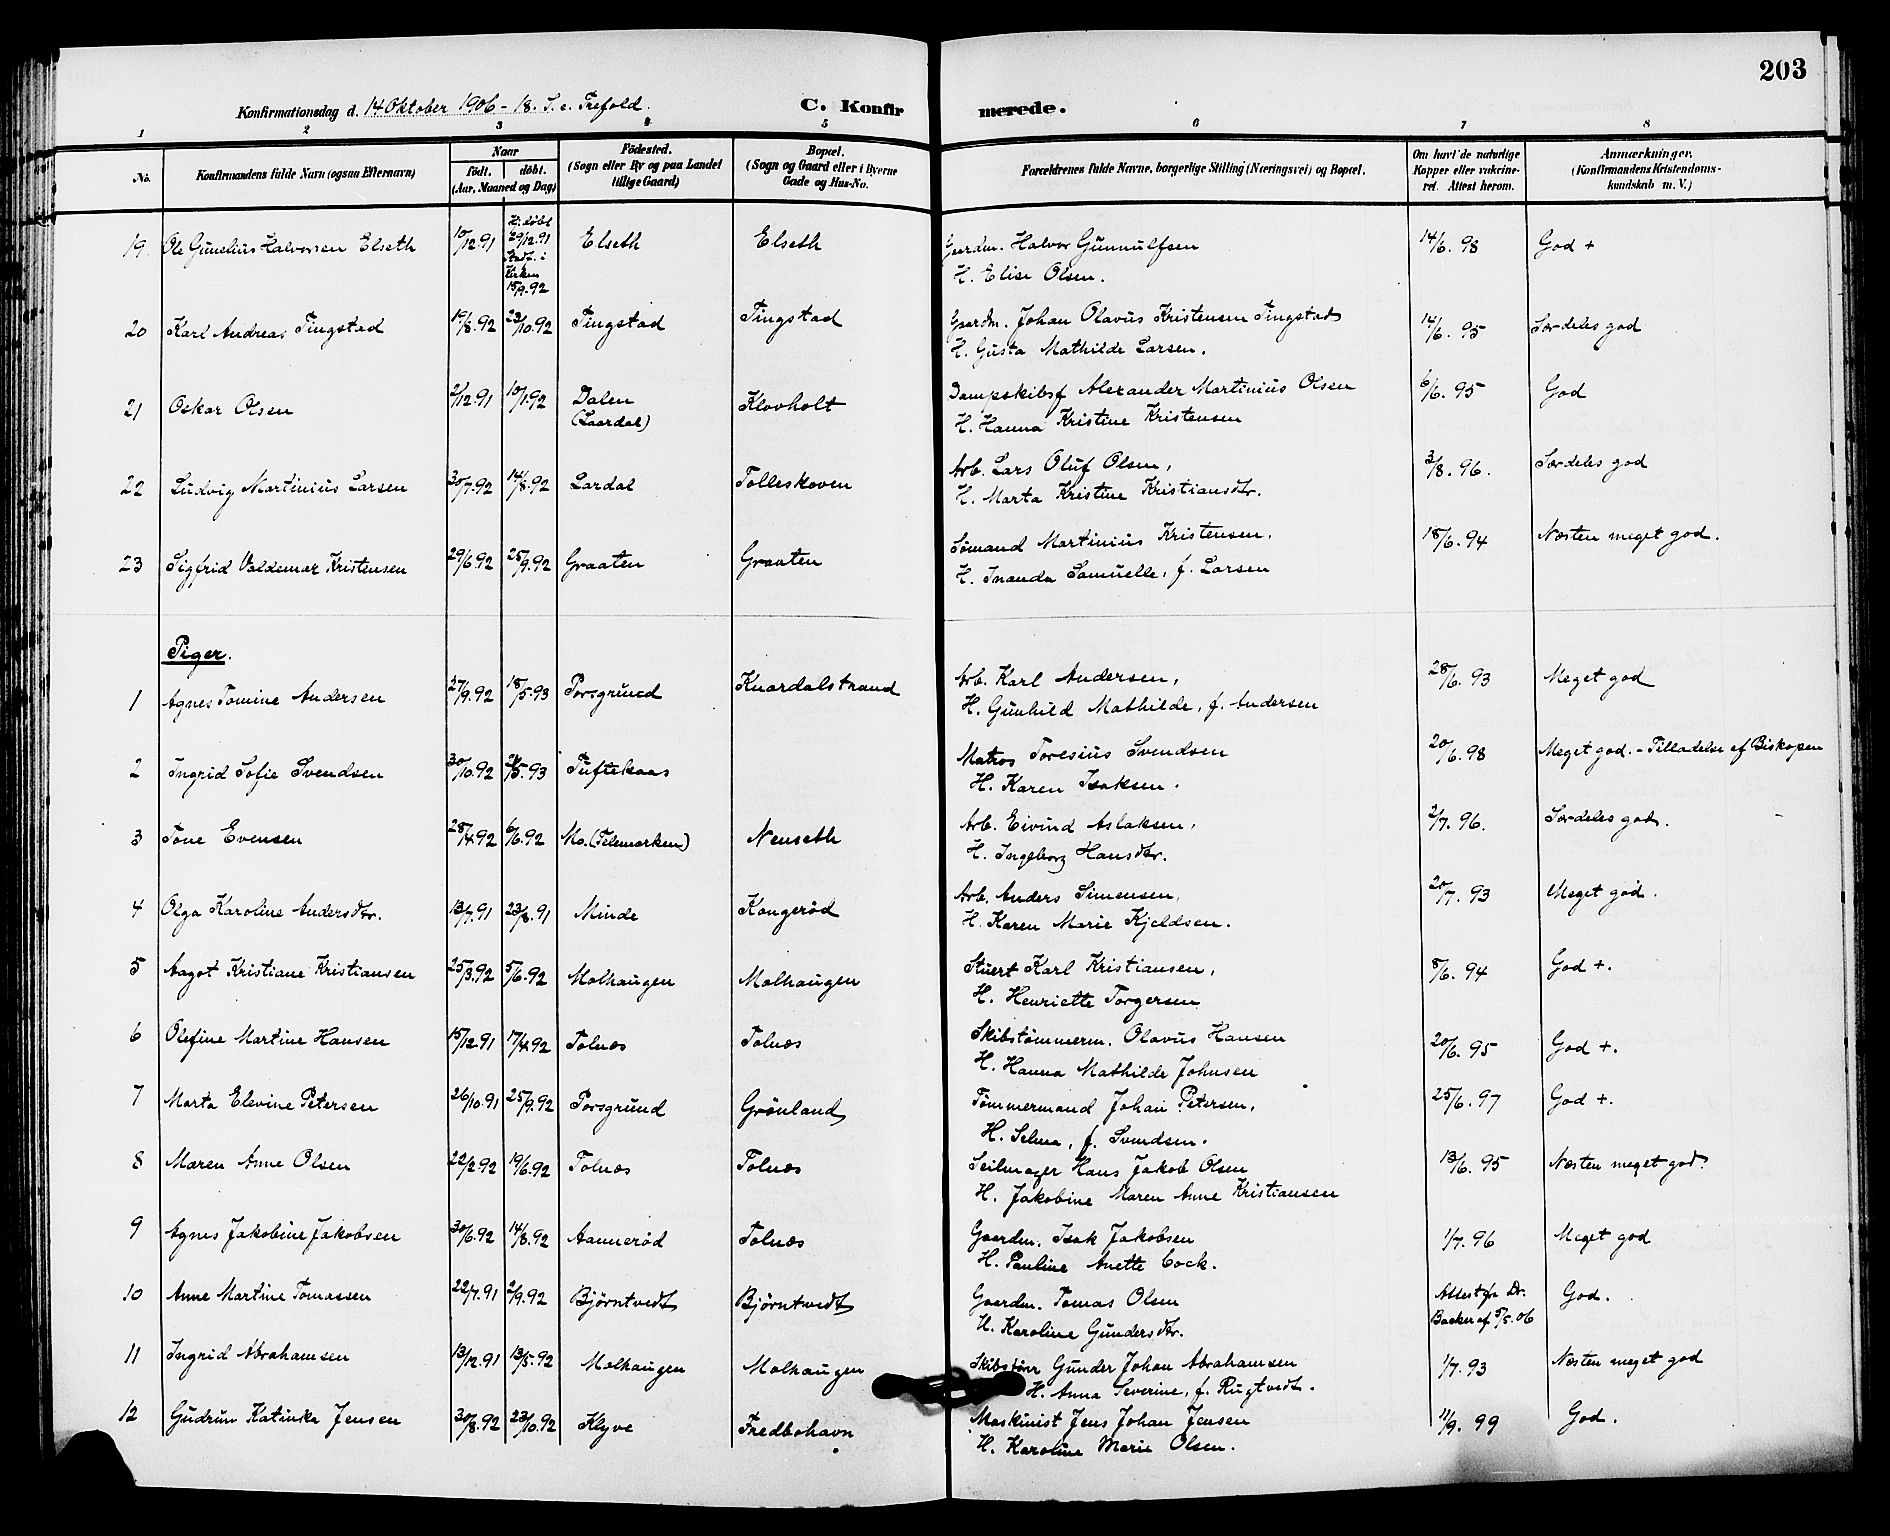 203
Konfirmationsdag d. 14 Oktober 1906 - 18. S. e. Trefold. C. Konfirmerede.
1 2 3 4 5 6 7 8
No. Konfirmandens fulde Navn (ogsaa Efternavn) Naar födt. döbt. (Aar, Maaned og Dag) Födested. (Sogn eller By og paa Landet tillige Gaard) Bopæl. (Sogn og Gaard eller i Byerne Gade og Hus-No. Forældrenes fulde Navne, borgerlige Stilling (Næringsvei) og Bopæl. Om havt de naturlige Kopper eller vakcineret. Attest herom. Anmærkninger. (Konfirmandens Kristendomskundskab m. V.)
19. Ole Gunelius Halvorsen Elseth 10/12.91 Hj. döbt 29/12.91 Stadf. i Kirken 15/9.92 Elseth Elseth Gaardm. Halvor Gunnulfsen 14/6. 98 God +
H. Elise Olsen.
20 Karl Andreas Tingstad 19/8.92 23/10.92 Tingstad Tingstad Gaardm. Johan Olavus Kristensen Tingstad 14/6. 95 Særdeles god
H. Gusta Mathilde Larsen.
21 Oskar Olsen 2/12.91 10/1.92 Dalen (Laardal) Klovholt Dampskibsf Alexander Martinius Olsen 6/6. 95 God
H. Hanna Kristine Kristensen
22 Ludvig Martinius Larsen 30/7.92 14/8.92 Lardal Tolleskoven Arb. Lars Oluf Olsen, 3/8. 96. Særdeles god
H. Marta Kristine Kristiansdtr.
23 Sigfrid Valdemar Kristensen 29/6.92 25/9.92 Graaten Graaten Sømand Martinius Kristensen. 18/6. 94 Næsten meget god.
H. Inanda Samuelle, f. Larsen
Piger.
1 Agnes Tomine Andersen 27/9.92 18/5.93 Porsgrund Knardalstrand Arb. Karl Andersen, 28/6. 93 Meget god
H. Gunhild Mathilde, f. Andersen
2 Ingrid Sofie Svendsen 30/10.92 21/5.93 Tuftekaas Matros Toresius Svendsen 20/6. 98 Meget god. - Tilladelse af Biskopen
H. Karen Isaksen.
3 Tone Evensen 28/4.92 6/6.92 Mo. (Telemarken) Nenseth Arb. Eivind Aslaksen, 2/7. 96. Særdeles god.
H. Ingeborg Hansdtr.
4 Olga Karoline Andersdtr. 13/7.91 23/8.91 Minde Kongerød Arb. Anders Simensen, 20/7. 93 Meget god.
H. Karen Marie Kjeldsen.
5 Aagot Kristiane Kristiansen 25/3.92 5/6.92 Molhaugen Molhaugen Stuert Karl Kristiansen, 8/6. 94 God +.
H. Henriette Torgersen
6 Olefine Martine Hansen 15/12.91 17/4.92 Tolnæs Tolnæs Skibstømmerm. Olavus Hansen 20/6. 95 God +.
H. Hanna Mathilde Johnsen
7 Marta Elevine Petersen 26/10.91 25/9.92 Porsgrund Grønland Tømmermand Johan Petersen, 25/6. 97 God +.
H. Selma, f. Svendsen.
8 Maren Anne Olsen 22/2.92 19/6.92 Tolnæs Tolnæs Seilmager Hans Jakob Olsen 13/6. 95 Næsten meget god.
H. Jakobine Maren Anne Kristiansen
9 Agnes Jakobine Jakobsen 30/6.92 14/8.92 Aannerød Tolnæs Gaardm. Isak Jakobsen 1/7. 96 Meget god
H. Pauline Anette Cock.
10 Anne Martine Tomassen 22/7.91 2/9.92 Bjørntvedt Bjørntvedt Gaardm. Tomas Olsen Attest fra Dr. Backer af 5/5.06 God.
H. Karoline Gundersdtr.
11 Ingrid Abrahamsen 13/12.91 13/5.92 Molhaugen Molhaugen Skibstømr Gunder Johan Abrahamsen 1/7. 93 Næsten meget god
H. Anna Severine, f. Rugtvedt.
12 Gudrun Katinka Jensen 30/8.92 23/10.92 Klyve Fredbohavn Maskinist Jens Johan Jensen 11/9. 99 God.
H. Karoline Marie Olsen.